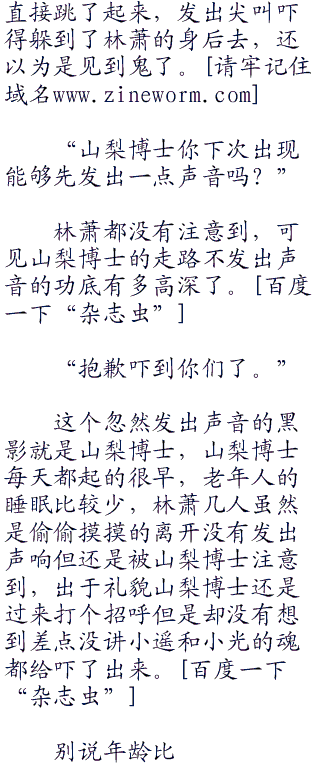 直接跳了起来，发出尖叫吓
得躲到了林萧的身后去，还
以为是见到鬼了。[请牢记住
域名www.zineworm.com]
“山梨博士你下次出现
能够先发出一点声音吗？”
林萧都没有注意到，可
见山梨博士的走路不发出声
音的功底有多高深了。[百度
一下“杂志虫”]
“抱歉吓到你们了。”
这个忽然发出声音的黑
影就是山梨博士，山梨博士
每天都起的很早，老年人的
睡眠比较少，林萧几人虽然
是偷偷摸摸的离开没有发出
声响但还是被山梨博士注意
到，出于礼貌山梨博士还是
过来打个招呼但是却没有想
到差点没讲小遥和小光的魂
都给吓了出来。[百度一下
“杂志虫”]
别说年龄比